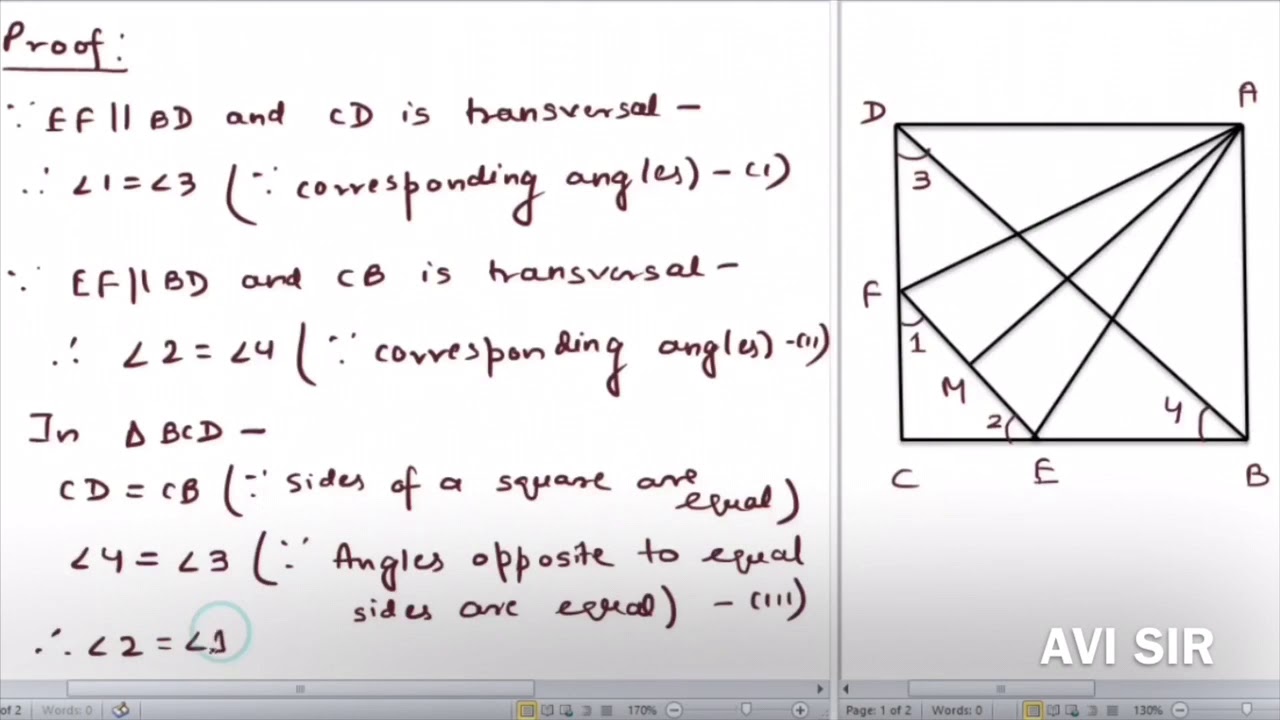 Proof:
∵ EF || BD and CD is transversal -
∴ ∠1 = ∠3 (∵ corresponding angles) - (I)
∵ EF || BD and CB is transversal -
∴ ∠2 = ∠4 (∵ corresponding angles) - (II)
In Δ BCD -
CD = CB (∵ sides of a square are
equal)
∠4 = ∠3 (∵ Angles opposite to equal
sides are equal) - (III)
∴ ∠2 = ∠1
D
A
3
F
1
M
2
4
C
E
B
AVI SIR
of 2
Words: 0
170%
Page: 1 of 2
Words: 0
130%